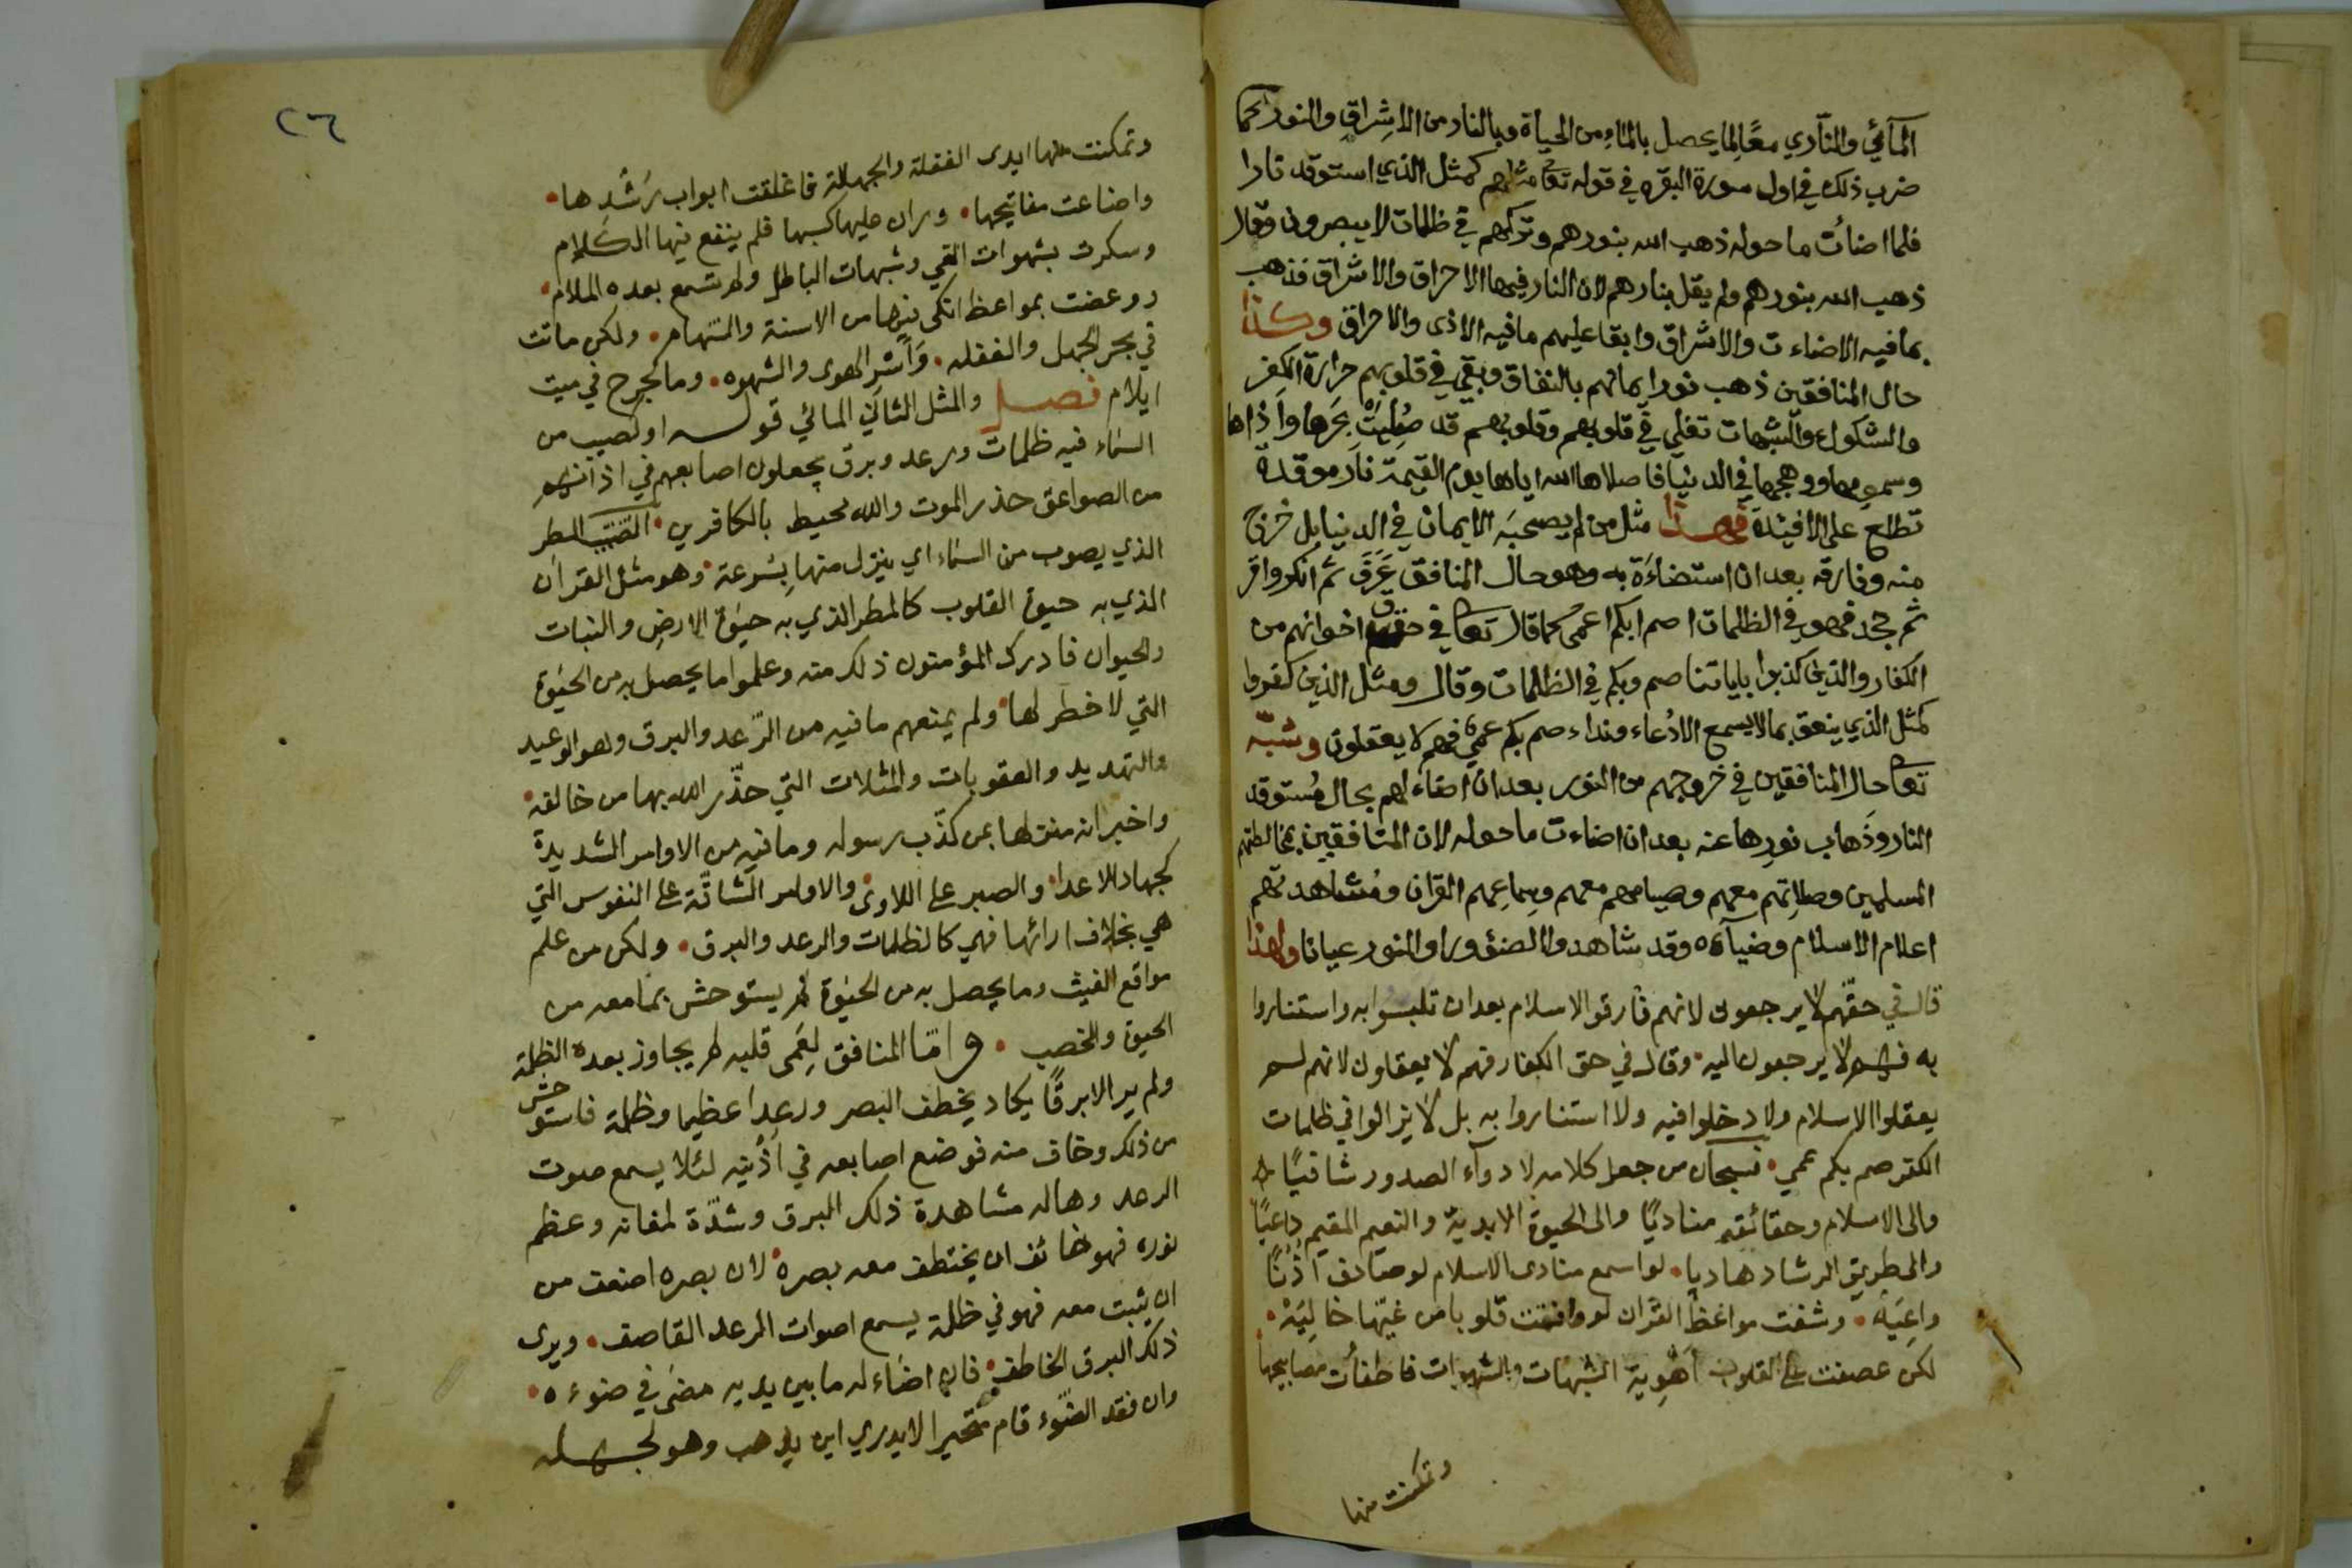 المآئي والنآري معًا لما يحصل بالماء من الحياة وبالنار من الاشراق والنور كما
ضرب ذلك في اول سورة البقره في قوله تعا مثلهم كمثل الذي استوقد نارا
فلما اضائت ما حوله ذهب الله بنورهم وتركهم في ظلمات لا يبصرون وقال
ذهب الله بنورهم ولم يقل بنارهم لان النار فيها الاحراق والاشراق فذهب
بما فيه الاضاءت والاشراق وابقا عليهم ما فيه الاذى والاحراق وكذا
حال المنافقين ذهب نور ايمانهم بالنفاق وبقي في قلوبهم حرارة الكفر
والشكوك والشبهات تغلي في قلوبهم وقلوبهم قد صُلِيَتْ بحَرها واَذاها
وسمومها ووهجها في الدنيا فاصلاها الله اياها يوم القيمة نار موقدة
تطلع على الافئدة فهذا مثل من لم يصحبَه الايمان في الدنيا بل خرج
منه وفارقه بعد ان استضاءَة به وهو حال المنافق عَرَفَ ثم انكر واقر
ثم جحد فهو في الظلمات اصم ابكم اعمى كما قال تعا في حق اخوانهم من
الكفار والذين كذبوا باياتنا صم وبكم في الظلمات وقال ومثل الذين كفروا
كمثل الذي ينعق بما لا يسمع الا دُعاء ونداء صم بكم عمي فهم لا يعقلون وشبّه
تعا حال المنافقين في خروجهم من النور بعد ان اضاء لهم بحال مُستوقد
النار وذَهاب نورِها عنه بعد ان اضاءت ما حوله لان المنافقين بمخالطتهم
المسلمين وصلاتهم معهم وصيامهم معهم وسِماعِهم القران ومُشاهدتهم
اعلام الاسلام وضيآءه وقد شاهدوا الضؤ وراو النور عيانا ولهذا
قال في حقّهم لا يرجعون لانهم فارقو الاسلام بعد ان تلبسُوا به واستناروا
به فهم لا يرجعون اليه وقال في حق الكفار فهم لا يعقلون لانهم لم
يعقلوا الاسلام ولا دخلوا فيه ولا استناروا به بل لا يزالوا في ظلمات
الكفر صم بكم عمي فسبحان من جعل كلامه لادوآء الصدور شافيًا
والى الاسلام وحقائقه مناديًا والى الحيوة الابدية والنعيم المقيم داعيًا
والى طريق الرشاد هاديا لو اسمع منادى الاسلام لو صادف اُذُنًا
واعِيَه وشفت مواعظ القران لو وافقت قلوبا من غيّها خالِيَهْ
لكن عصفت على القلوب اَهْوِية الشبهات والشهوات فاطفأت مصابيحها
وتمكنت منها
٢٦
وتمكنت منها ايدى الغفلة والجهالة فاغلقت ابواب رَشْدِها
واضاعت مفاتيحها وران عليها كسبها فلم ينفع فيها الكلام
وسكرت بشهوات الغي وشبهات الباطل ولم تسمع بعده الملام
ووعضت بمواعظ انكى فيها من الاسنة والسّهام ولكن ماتت
في بحر الجهل والغفله وَاَسْرِ الهوى والشهوه وما لجرح في ميت
ايلام فصل والمثل الثاني المائي قوله او كصيب من
السّماء فيه ظلمات ورعد وبرق يجعلون اصابعهم في اذانهم
من الصواعق حذر الموت والله محيط بالكافرين الصّيّب المطر
الذي يصوب من السّماء اي ينزل منها بِسُرعة وهو مثل القران
الذي به حيوة القلوب كالمطر الذي به حيٰوة الارضِ والنبات
والحيوان فادرك المؤمنون ذلك منه وعلموا ما يحصل به من الحيٰوة
التي لا خطر لها ولم يمنعهم ما فيه من الرّعد والبرق وهو الوعيد
والتهديد والعقوبات والمثلات التي حذّر الله بها من خالفه
واخبر انه منزلها بمن كذّب رسوله وما فيه من الاوامر الشديدة
كجهاد الاعدا والصبر على اللاوى والاوامر الشاقّة على النفوس التي
هي بخلاف ارائها فهي كالظلمات والرعد والبرق ولكن من علم
مواقع الغيث وما يحصل به من الحيٰوة لم يستوحش بما معه من
الحيوة والخصب وامّا المنافق لِعَمى قلبه لم يجاوز بعده الظلمة
ولم ير الا برقًا يكاد يخطف البصر ورعدا عظيما وظلمة فاستوحش
من ذلك وخاف منه فوضع اصابعه في اُذُنيه لئلا يسمع صوت
الرعد وهاله مشاهدة ذلك البرق وشدّة لمعانه وعظم
نوره فهو خائف ان يختطف معه بصره لان بصره اضعف من
ان يثبت معه فهو في ظلمة يسمع اصوات الرعد القاصف ويرى
ذلك البرق الخاطف فان اضَاء له ما بين يديه مضَى في ضوءه
وان فقد الضّوء قام متحيرا لا يدري اين يذهب وهو لجهله